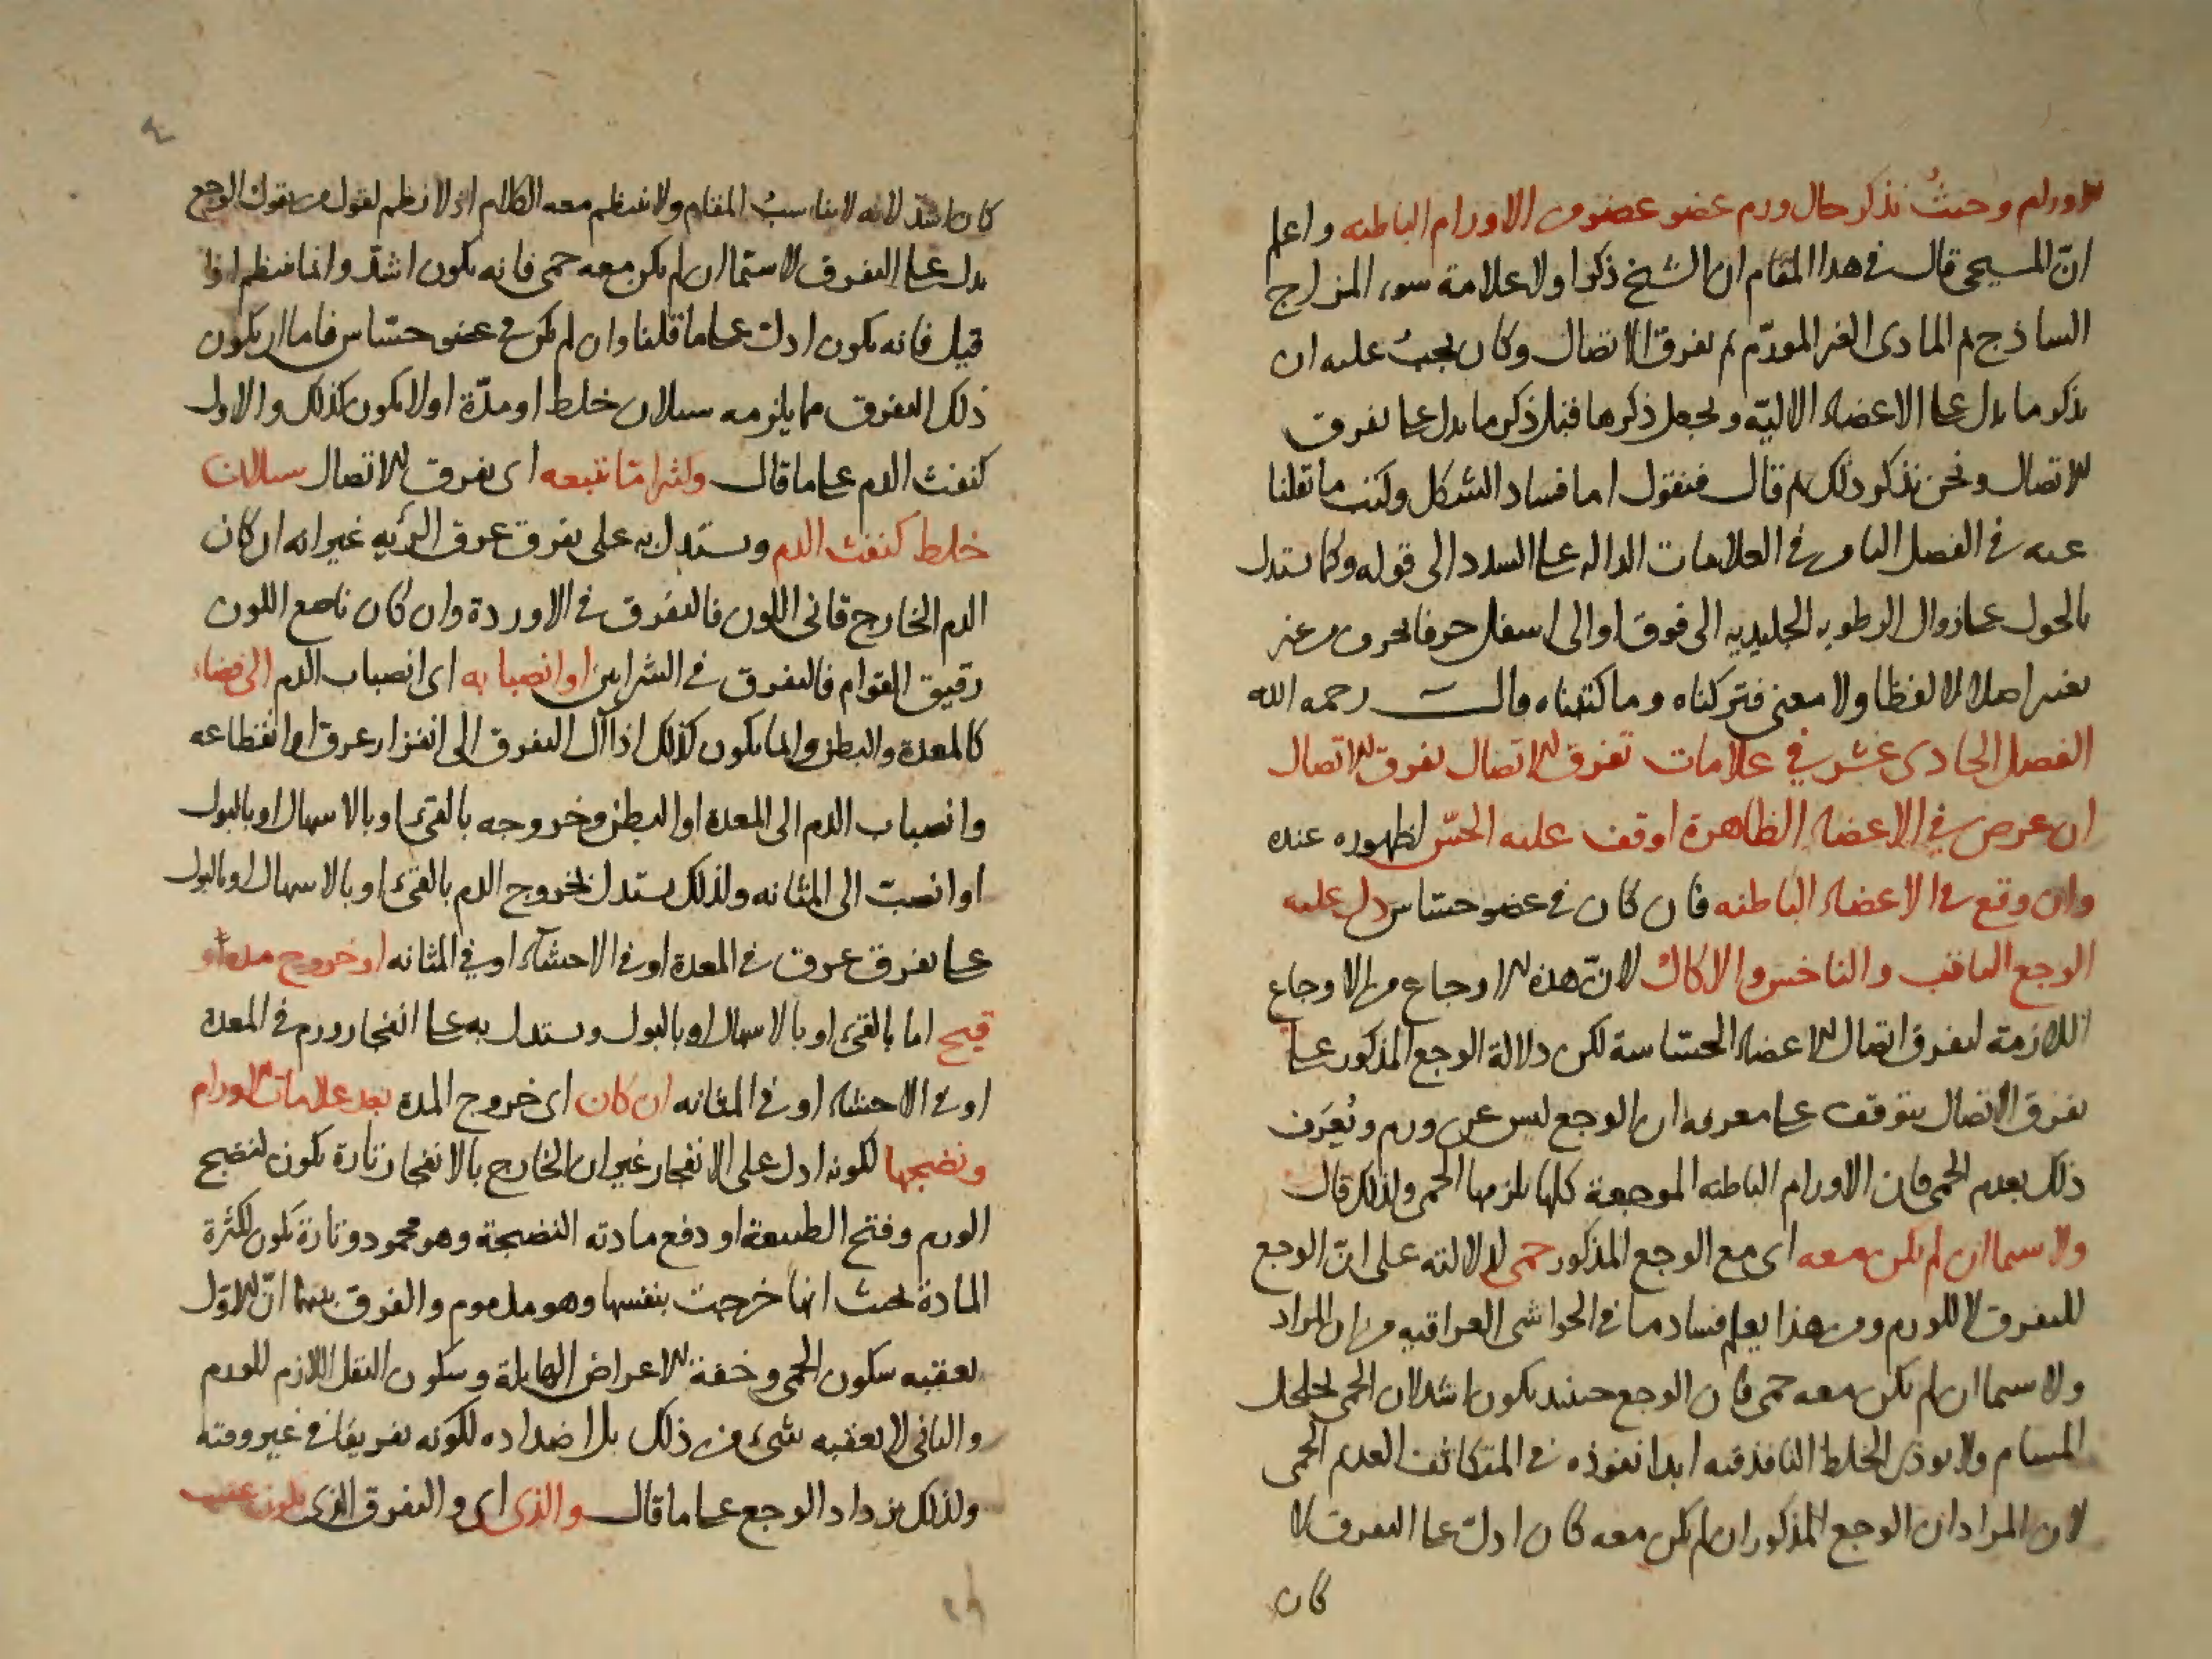 الاورام وحيث نذكر حال ورم عضو عضو من الاورام الباطنه واعلم
انّ المسيحى قال فى هذا المقام ان الشيخ ذكر اولا علامة سوء المزاج
الساذج ثم المادى الغير المورّم ثم تفرق الاتصال وكان يجب عليه ان
يذكر ما يدل على الاعضاء الاليّه ويجعل ذكرها قبل ذكر ما يدل على تفرق
الاتصال ونحن نذكر ذلك ثم قال فنقول اما فساد الشكل وكتب ما نقلنا
عنه فى الفصل الثامن فى العلامات الداله على السدد الى قوله وكما يستدل
بالحول على زوال الرطوبه الجليديه الى فوق او الى اسفل حرفا بحرف من غير
تغير اصلا لا لفظا ولا معنى فتركناه وما كتبناه قال رحمه الله
الفصل الحادى عشر فى علامات تفرق الاتصال تفرق الاتصال
ان عرض فى الاعضاء الظاهرة اوقف عليه الحسّ لظهوره عنده
وان وقع فى الاعضاء الباطنه فان كان فى عضو حسّاس دل عليه
الوجع الثاقب والناخس والاكال لانّ هذه الاوجاع من الاوجاع
اللازمة لتفرق اتصال الاعضاء الحسّاسة لكن دلالة الوجع المذكور على
تفرق الاتصال يتوقف على معرفه ان الوجع ليس عن ورم ويُعرَف
ذلك بعدم الحمى فان الاورام الباطنه الموجعة كلها يلزمها الحمى ولذلك قال
ولا سيما ان لم يكن معه اى مع الوجع المذكور حمى لدلالته على انّ الوجع
للتفرق لا للورم ومن هذا يعلم فساد ما فى الحواشى العراقيه من ان المراد
ولا سيما ان لم يكن معه حمى فان الوجع حينئذ يكون اشد لان الحمى يخلخل
المسام ولا يوذى الخلط النافذ فيه ايذا نفوذه فى المتكاثف لعدم الحمى
لان المراد ان الوجع المذكور ان لم يكن معه كان ادلّ على التفرق لا
كان
كان اشدّ لانه لا يناسب المقام ولا ينتظم معه الكلام اذ لا نظم لقول من يقول الوجع
يدل على التفرق لا سيما ان لم يكن معه حمى فانه يكون اشدّ وانما ينتظم اذا
قيل فانه يكون ادلّ على ما قلنا وان لم يكن فى عضو حسّاس فاما ان يكون
ذلك التفرق مما يلزمه سيلان خلط او مدّة او لا يكون كذلك والاول
كنفث الدم على ما قال وكثيرا ما يتبعه اى تفرق الاتصال سيلان
خلط كنفث الدم ويستدل به على تفرق عرق الرئه غير انه ان كان
الدم الخارج قانى اللون فالتفرق فى الاوردة وان كان ناصع اللون
رقيق القوام فالتفرق فى الشرايين او انصبابه اى انصباب الدم الى فضاء
كالمعدة والبطن وانما يكون كذلك اذا آل التفرق الى انفزار عرق او انقطاعه
وانصباب الدم الى المعدة او البطن وخروجه بالقئ او بالاسهال او بالبول
او انصبّ الى المثانه ولذلك يستدل بخروج الدم بالقئ او بالاسهال او بالبول
على تفرق عرق فى المعدة او فى الاحشآء او فى المثانه او خروج مدة او
قيح اما بالقئ او بالاسهال او بالبول ويستدل به على انفجار ورم فى المعدة
او فى الاحشاء او فى المثانه ان كان اى خروج المدة بعد علامات الاورام
ونضجها لكونه ادل على الانفجار غير ان الخارج بالانفجار تارة يكون لنضج
الورم وفتح الطبيعة او دفع مادته النضيجة وهو محمود وتارة يكون لكثرة
المادة بحيث انها خرجت بنفسها وهو مذموم والفرق بينهما انّ الاوّل
يعقبه سكون الحمى وخفة الاعراض الهايلة وسكون الثقل اللازم للورم
والثانى لا يعقبه شئ من ذلك بل اضداده لكونه تفريقا فى غير وقته
ولذلك يزداد الوجع على ما قال والذى اى والتفرق الذى يكون عقيب